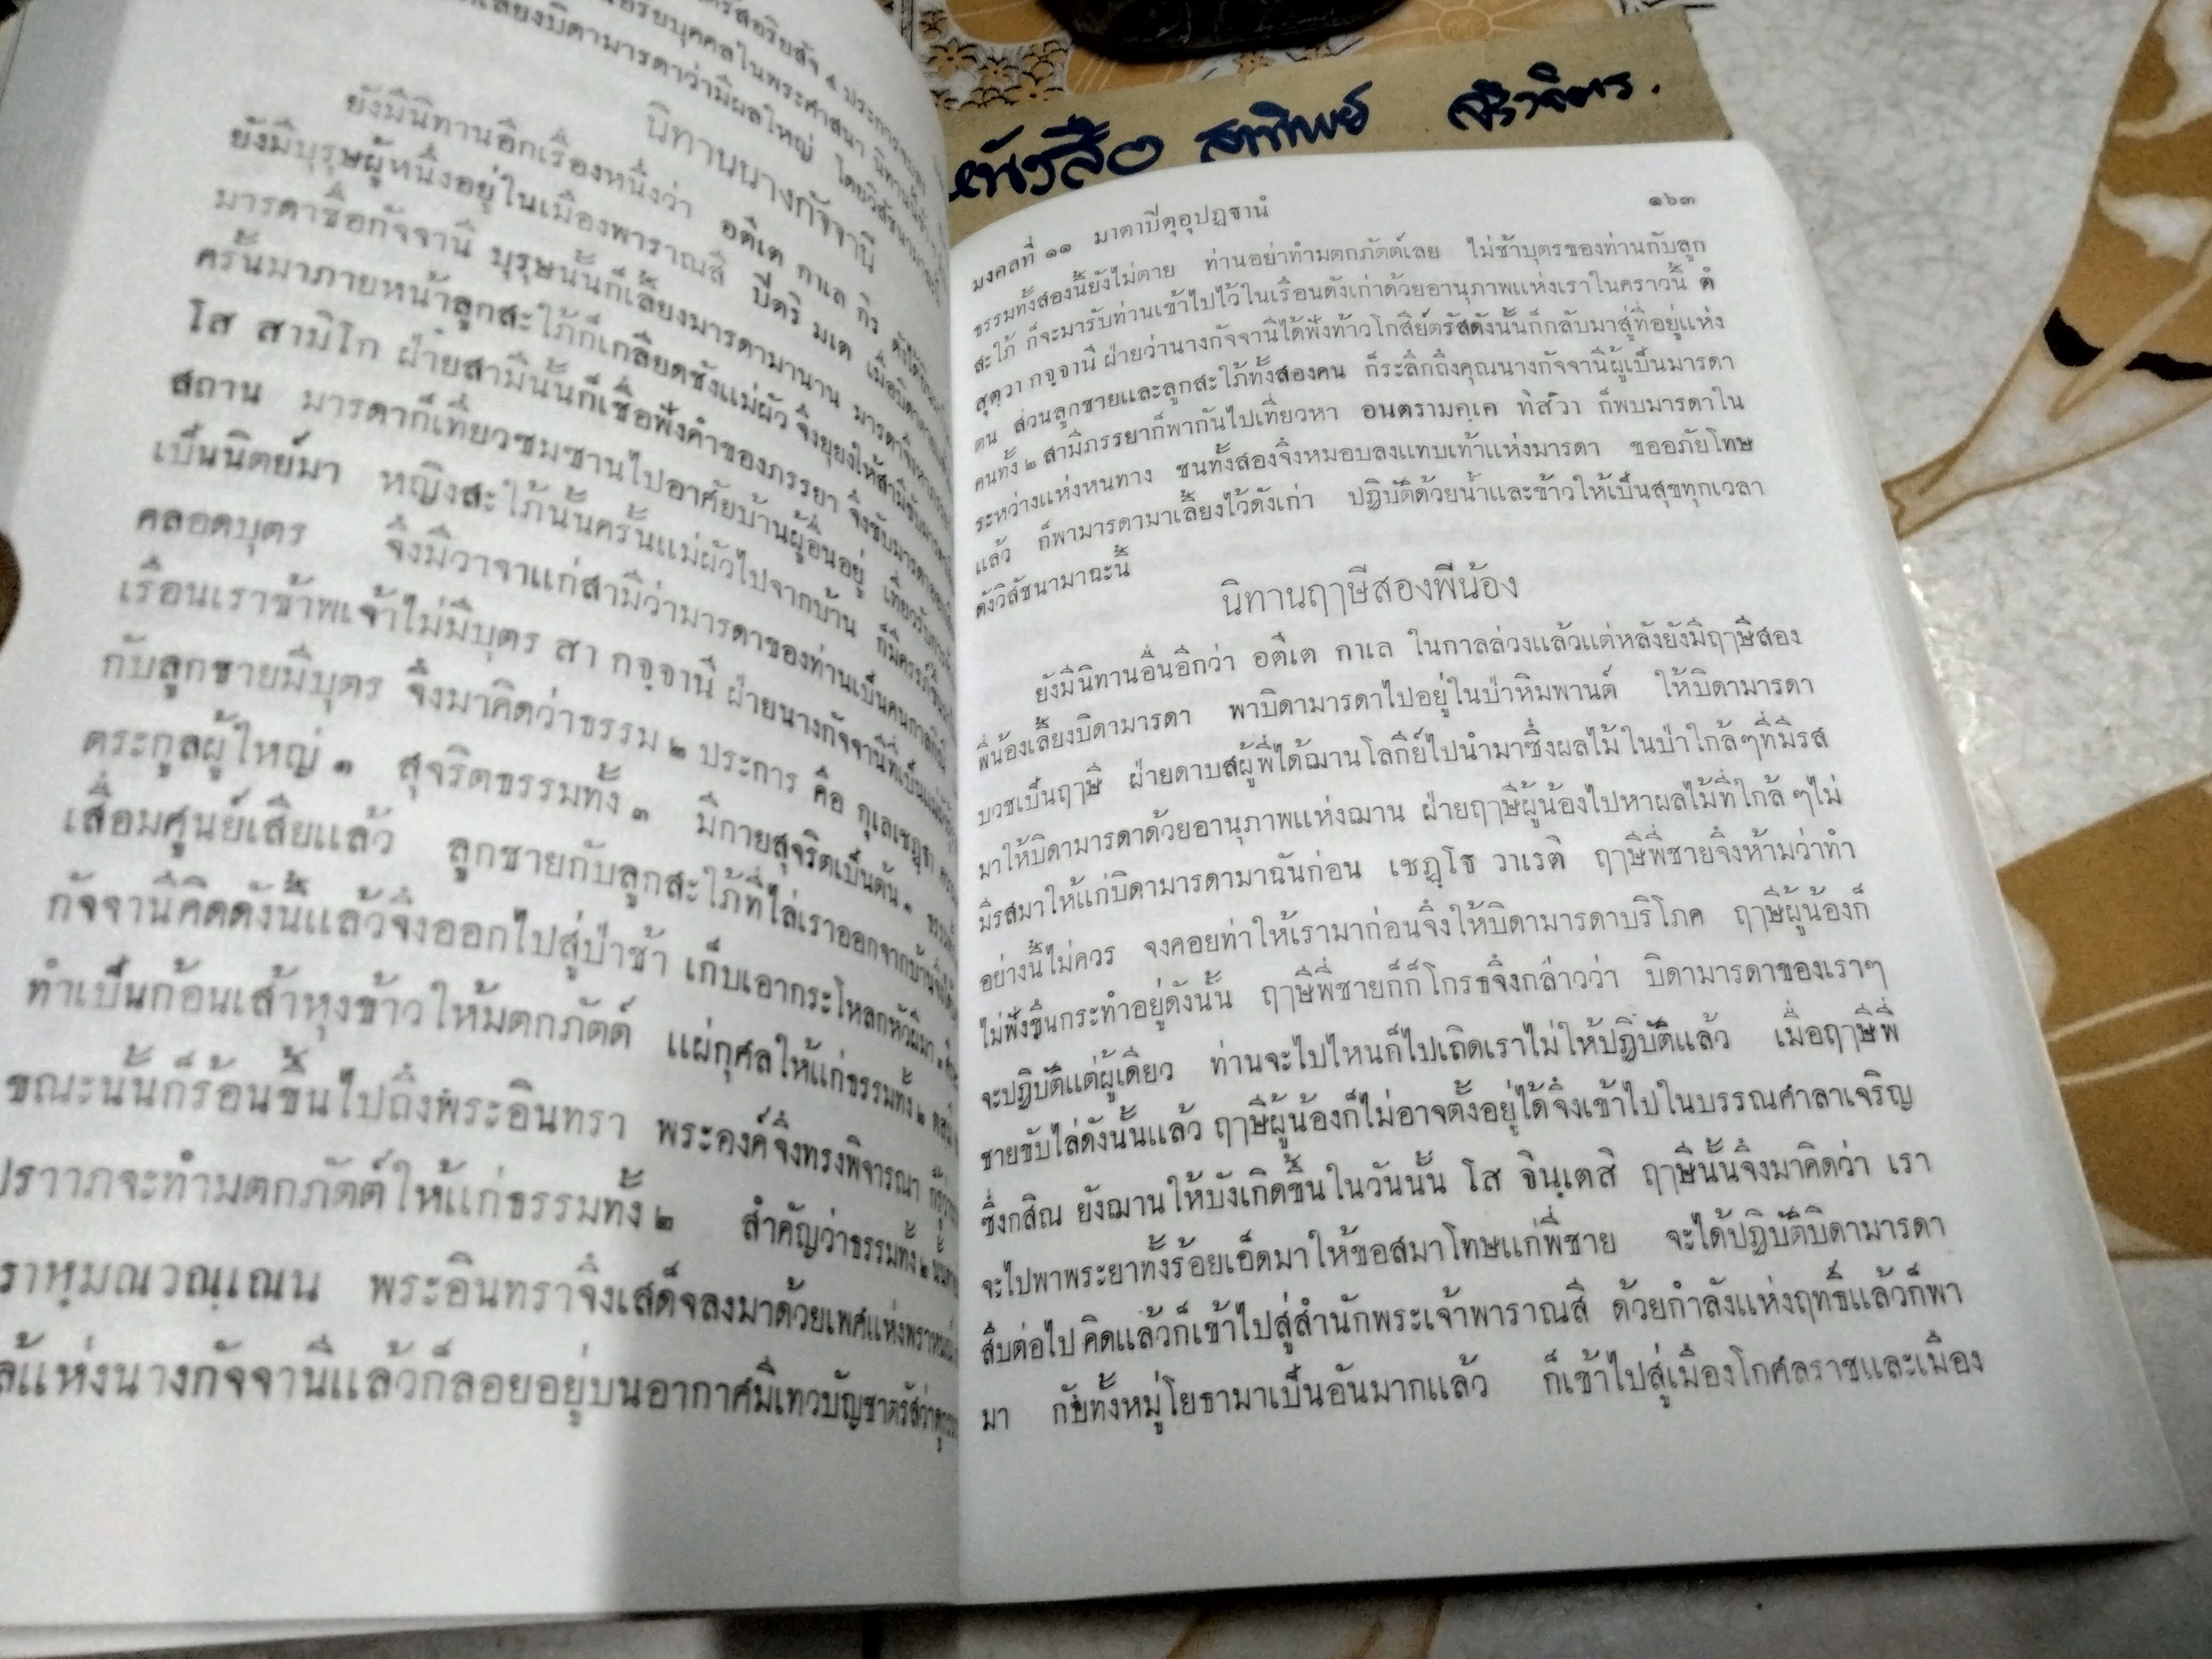 หนังสือ สาทิพย์
ประการ
อริยบุคคลในพระศาสนา นิทานนี้
เลี้ยงบิดามารดาว่ามีผลใหญ่ โดยวิสัชนามาฉะนี้
นิทานนางกัจจานี
ยังมีนิทานอีกเรื่องหนึ่งว่า อตีเต กาเล กิร
ยังมีบุรุษผู้หนึ่งอยู่ในเมืองพาราณสี ปิตริ มเต เมื่อบิดา
มารดาชื่อกัจจานี บุรุษนั้นก็เลี้ยงมารดามานาน มารดาจึงหาภรรยา
ครั้นมาภายหน้าลูกสะใภ้ก็เกลียดชังแม่ผัว จึงยุยงให้สามีขับมารดา
โส สามิโก ฝ่ายสามีนั้นก็เชื่อฟังคำของภรรยา จึงขับมารดา
สถาน มารดาก็เที่ยวซมซานไปอาศัยบ้านผู้อื่นอยู่ เที่ยวรับ
เป็นนิตย์มา หญิงสะใภ้นั้นครั้นแม่ผัวไปจากบ้าน ก็มีครรภ์
คลอดบุตร จึงมีวาจาแก่สามีว่ามารดาของท่านเป็นคนกาลกิณี
เรือนเราข้าพเจ้าไม่มีบุตร สา กจฺจานี ฝ่ายนางกัจจานีที่เป็นแม่
กับลูกชายมีบุตร จึงมาคิดว่าธรรม ๒ ประการ คือ กุเลเชฏฺฐา
ตระกูลผู้ใหญ่ ๑ สุจริตธรรมทั้ง ๓ มีกายสุจริตเป็นต้น ๑ ธรรม
เสื่อมศูนย์เสียแล้ว ลูกชายกับลูกสะใภ้ที่ไล่เราออกจากบ้าน
กัจจานีคิดดังนี้แล้วจึงออกไปสู่ป่าช้า เก็บเอากระโหลกหัวผีมา
ทำเป็นก้อนเส้าหุงข้าวให้มตกภัตต์ แผ่กุศลให้แก่ธรรมทั้ง ๒
ขณะนั้นก็ร้อนขึ้นไปถึงพระอินทรา พระองค์จึงทรงพิจารณา
ปรารภจะทำมตกภัตต์ให้แก่ธรรมทั้ง ๒ สำคัญว่าธรรมทั้ง ๒ นั้น
ราหฺมณวณฺเณน พระอินทราจึงเสด็จลงมาด้วยเพศแห่งพราหมณ์
ล้แห่งนางกัจจานีแล้วก็ลอยอยู่บนอากาศมีเทวบัญชาตรัสว่า
มงคลที่ ๑๑ มาตาปิตุอุปฏฺฐานํ ๑๖๓
ธรรมทั้งสองนี้ยังไม่ตาย ท่านอย่าทำมตกภัตต์เลย ไม่ช้าบุตรของท่านกับลูก
สะใภ้ ก็จะมารับท่านเข้าไปไว้ในเรือนดังเก่าด้วยอานุภาพแห่งเราในคราวนี้ ตํ
สุตฺวา กจฺจานี ฝ่ายว่านางกัจจานีได้ฟังท้าวโกสีย์ตรัสดังนั้นก็กลับมาสู่ที่อยู่แห่ง
ตน ส่วนลูกชายและลูกสะใภ้ทั้งสองคน ก็ระลึกถึงคุณนางกัจจานีผู้เป็นมารดา
คนทั้ง ๒ สามีภรรยาก็พากันไปเที่ยวหา อนตรามคฺเค ทิสฺวา ก็พบมารดาใน
ระหว่างแห่งหนทาง ชนทั้งสองจึงหมอบลงแทบเท้าแห่งมารดา ขออภัยโทษ
แล้ว ก็พามารดามาเลี้ยงไว้ดังเก่า ปฏิบัติด้วยน้ำและข้าวให้เป็นสุขทุกเวลา
ดังวิสัชนามาฉะนี้
นิทานฤๅษีสองพี่น้อง
ยังมีนิทานอื่นอีกว่า อตีเต กาเล ในกาลล่วงแล้วแต่หลังยังมีฤๅษีสอง
พี่น้องเลี้ยงบิดามารดา พาบิดามารดาไปอยู่ในป่าหิมพานต์ ให้บิดามารดา
บวชเป็นฤๅษี ฝ่ายดาบสผู้พี่ได้ฌานโลกีย์ไปนำมาซึ่งผลไม้ในป่าใกล้ๆที่มีรส
มาให้บิดามารดาด้วยอานุภาพแห่งฌาน ฝ่ายฤๅษีผู้น้องไปหาผลไม้ที่ใกล้ ๆไม่
มีรสมาให้แก่บิดามารดามาฉันก่อน เชฏฺโฐ วาเรติ ฤๅษีพี่ชายจึงห้ามว่าทำ
อย่างนี้ไม่ควร จงคอยท่าให้เรามาก่อนจึงให้บิดามารดาบริโภค ฤๅษีผู้น้องก็
ไม่ฟังขืนกระทำอยู่ดังนั้น ฤๅษีพี่ชายก็ก็โกรธจึงกล่าวว่า บิดามารดาของเราๆ
จะปฏิบัติแต่ผู้เดียว ท่านจะไปไหนก็ไปเถิดเราไม่ให้ปฏิบัติแล้ว เมื่อฤๅษีพี่
ชายขับไล่ดังนั้นแล้ว ฤๅษีผู้น้องก็ไม่อาจตั้งอยู่ได้จึงเข้าไปในบรรณศาลาเจริญ
ซึ่งกสิณ ยังฌานให้บังเกิดขึ้นในวันนั้น โส จินฺเตสิ ฤๅษีนั้นจึงมาคิดว่า เรา
จะไปพาพระยาทั้งร้อยเอ็ดมาให้ขอสมาโทษแก่พี่ชาย จะได้ปฏิบัติบิดามารดา
สืบต่อไป คิดแล้วก็เข้าไปสู่สำนักพระเจ้าพาราณสี ด้วยกำลังแห่งฤทธิ์แล้วก็พา
มา กับทั้งหมู่โยธามาเป็นอันมากแล้ว ก็เข้าไปสู่เมืองโกศลราชและเมือง